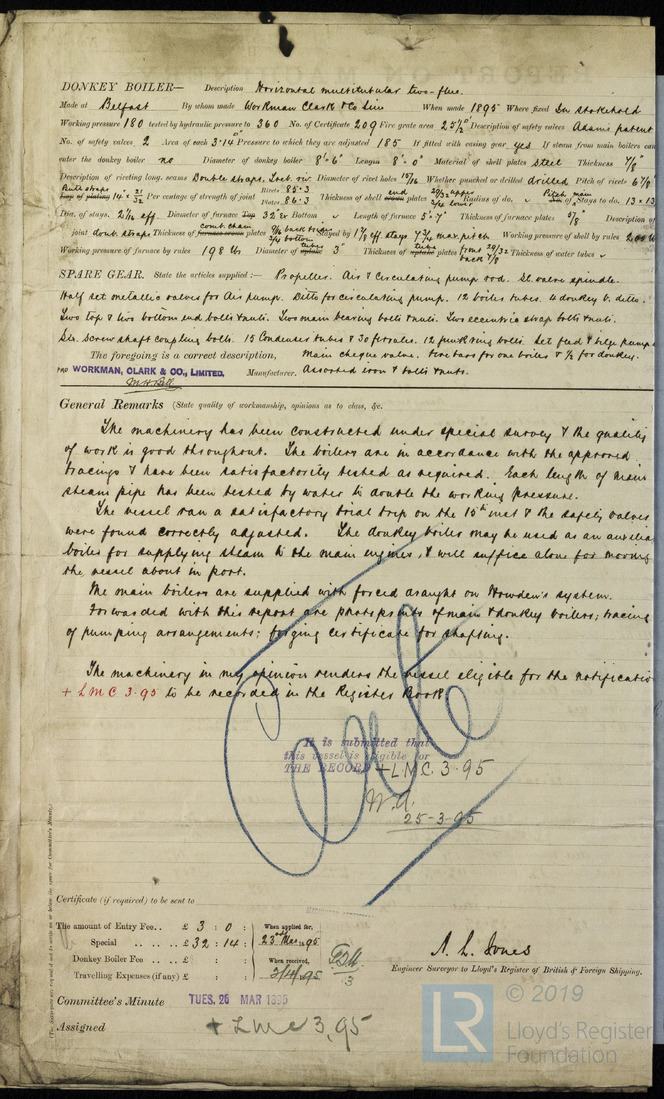 DONKEY BOILER— Description Horizontal multitubular two-flue.
Made at Belfast By whom made Workman Clark & Co Lim When made 1895 Where fixed In stokehold
Working pressure 180 tested by hydraulic pressure to 360 No. of Certificate 209 Fire grate area 25½ Description of safety valves Adams patent
No. of safety valves 2 Area of each 3.14" Pressure to which they are adjusted 185 If fitted with easing gear yes If steam from main boilers can
enter the donkey boiler no Diameter of donkey boiler 8'-6" Length 8'-0" Material of shell plates steel Thickness 7/8"
Description of riveting long. seams Double straps. Treb. riv Diameter of rivet holes 15/16 Whether punched or drilled drilled Pitch of rivets 6 7/8"
Butt straps 14" x 21/32 Per centage of strength of joint Rivets 85.3 Plates 86.3 Thickness of shell end plates 29/32 upper 3/4 lower Radius of do. Pitch main of Stays to do. 13 x 13
Dia. of stays. 2 1/16 eff Diameter of furnace Top 32" Ex Bottom Length of furnace 5'-7" Thickness of furnace plates 5/8" Description of
joint doub straps Thickness of comb. cham plates 9/16 back 3/4 bottom Stayed by 1 1/8 eff stays 7 3/4 max pitch Working pressure of shell by rules
Working pressure of furnace by rules 198 lbs Diameter of tubes 3" Thickness of tube plates front 29/32 back 7/8 Thickness of water tubes
SPARE GEAR. State the articles supplied:— Propeller. Air & Circulating pump rod. Sl. valve spindle.
Half set metallic valves for Air pump. Ditto for circulating pump. 12 boiler tubes. 4 donkey b. ditto.
Two top & two bottom end bolts & nuts. Two main bearing bolts & nuts. Two eccentric strap bolts & nuts.
Six screw shaft coupling bolts. 15 Condenser tubes & 30 ferrules. 12 junk ring bolts. Set feed & bilge pump
The foregoing is a correct description, Main cheque valve. Fire bars for one boiler & ½ for donkey.
PRO WORKMAN, CLARK & CO., LIMITED. Manufacturer. Assorted iron & bolts & nuts.
General Remarks (State quality of workmanship, opinions as to class, &c.
The machinery has been constructed under special survey & the quality
of work is good throughout. The boilers are in accordance with the approved
tracings & have been satisfactorily tested as required. Each length of main
steam pipe has been tested by water to double the working pressure.
The vessel ran a satisfactory trial trip on the 15th inst & the safety valves
were found correctly adjusted. The donkey boiler may be used as an auxilia
boiler for supplying steam to the main engines, & will suffice alone for moving
the vessel about in port.
The main boilers are supplied with forced draught on Howden's system.
Forwarded with this report are photoprints of main & donkey boilers; tracing
of pumping arrangements; forging certificate for shafting.
The machinery in my opinion renders the vessel eligible for the notificatio
+ LMC 3.95 to be recorded in the Register Book
It is submitted that
this vessel is eligible for
THE RECORD + LMC. 3.95
25-3-95
Certificate (if required) to be sent to
The amount of Entry Fee.. £ 3 : 0 : When applied for,
Special .. .. .. £ 32 : 14 : 23rd Mar 1895
Donkey Boiler Fee .. .. £ : : When received,
Travelling Expenses (if any) £ : : 3/4/95
A. L. Jones
Engineer Surveyor to Lloyd's Register of British & Foreign Shipping.
Committee's Minute TUES. 26 MAR 1895
Assigned + LMC 3,95
LR © 2019
Lloyd's Register
Foundation